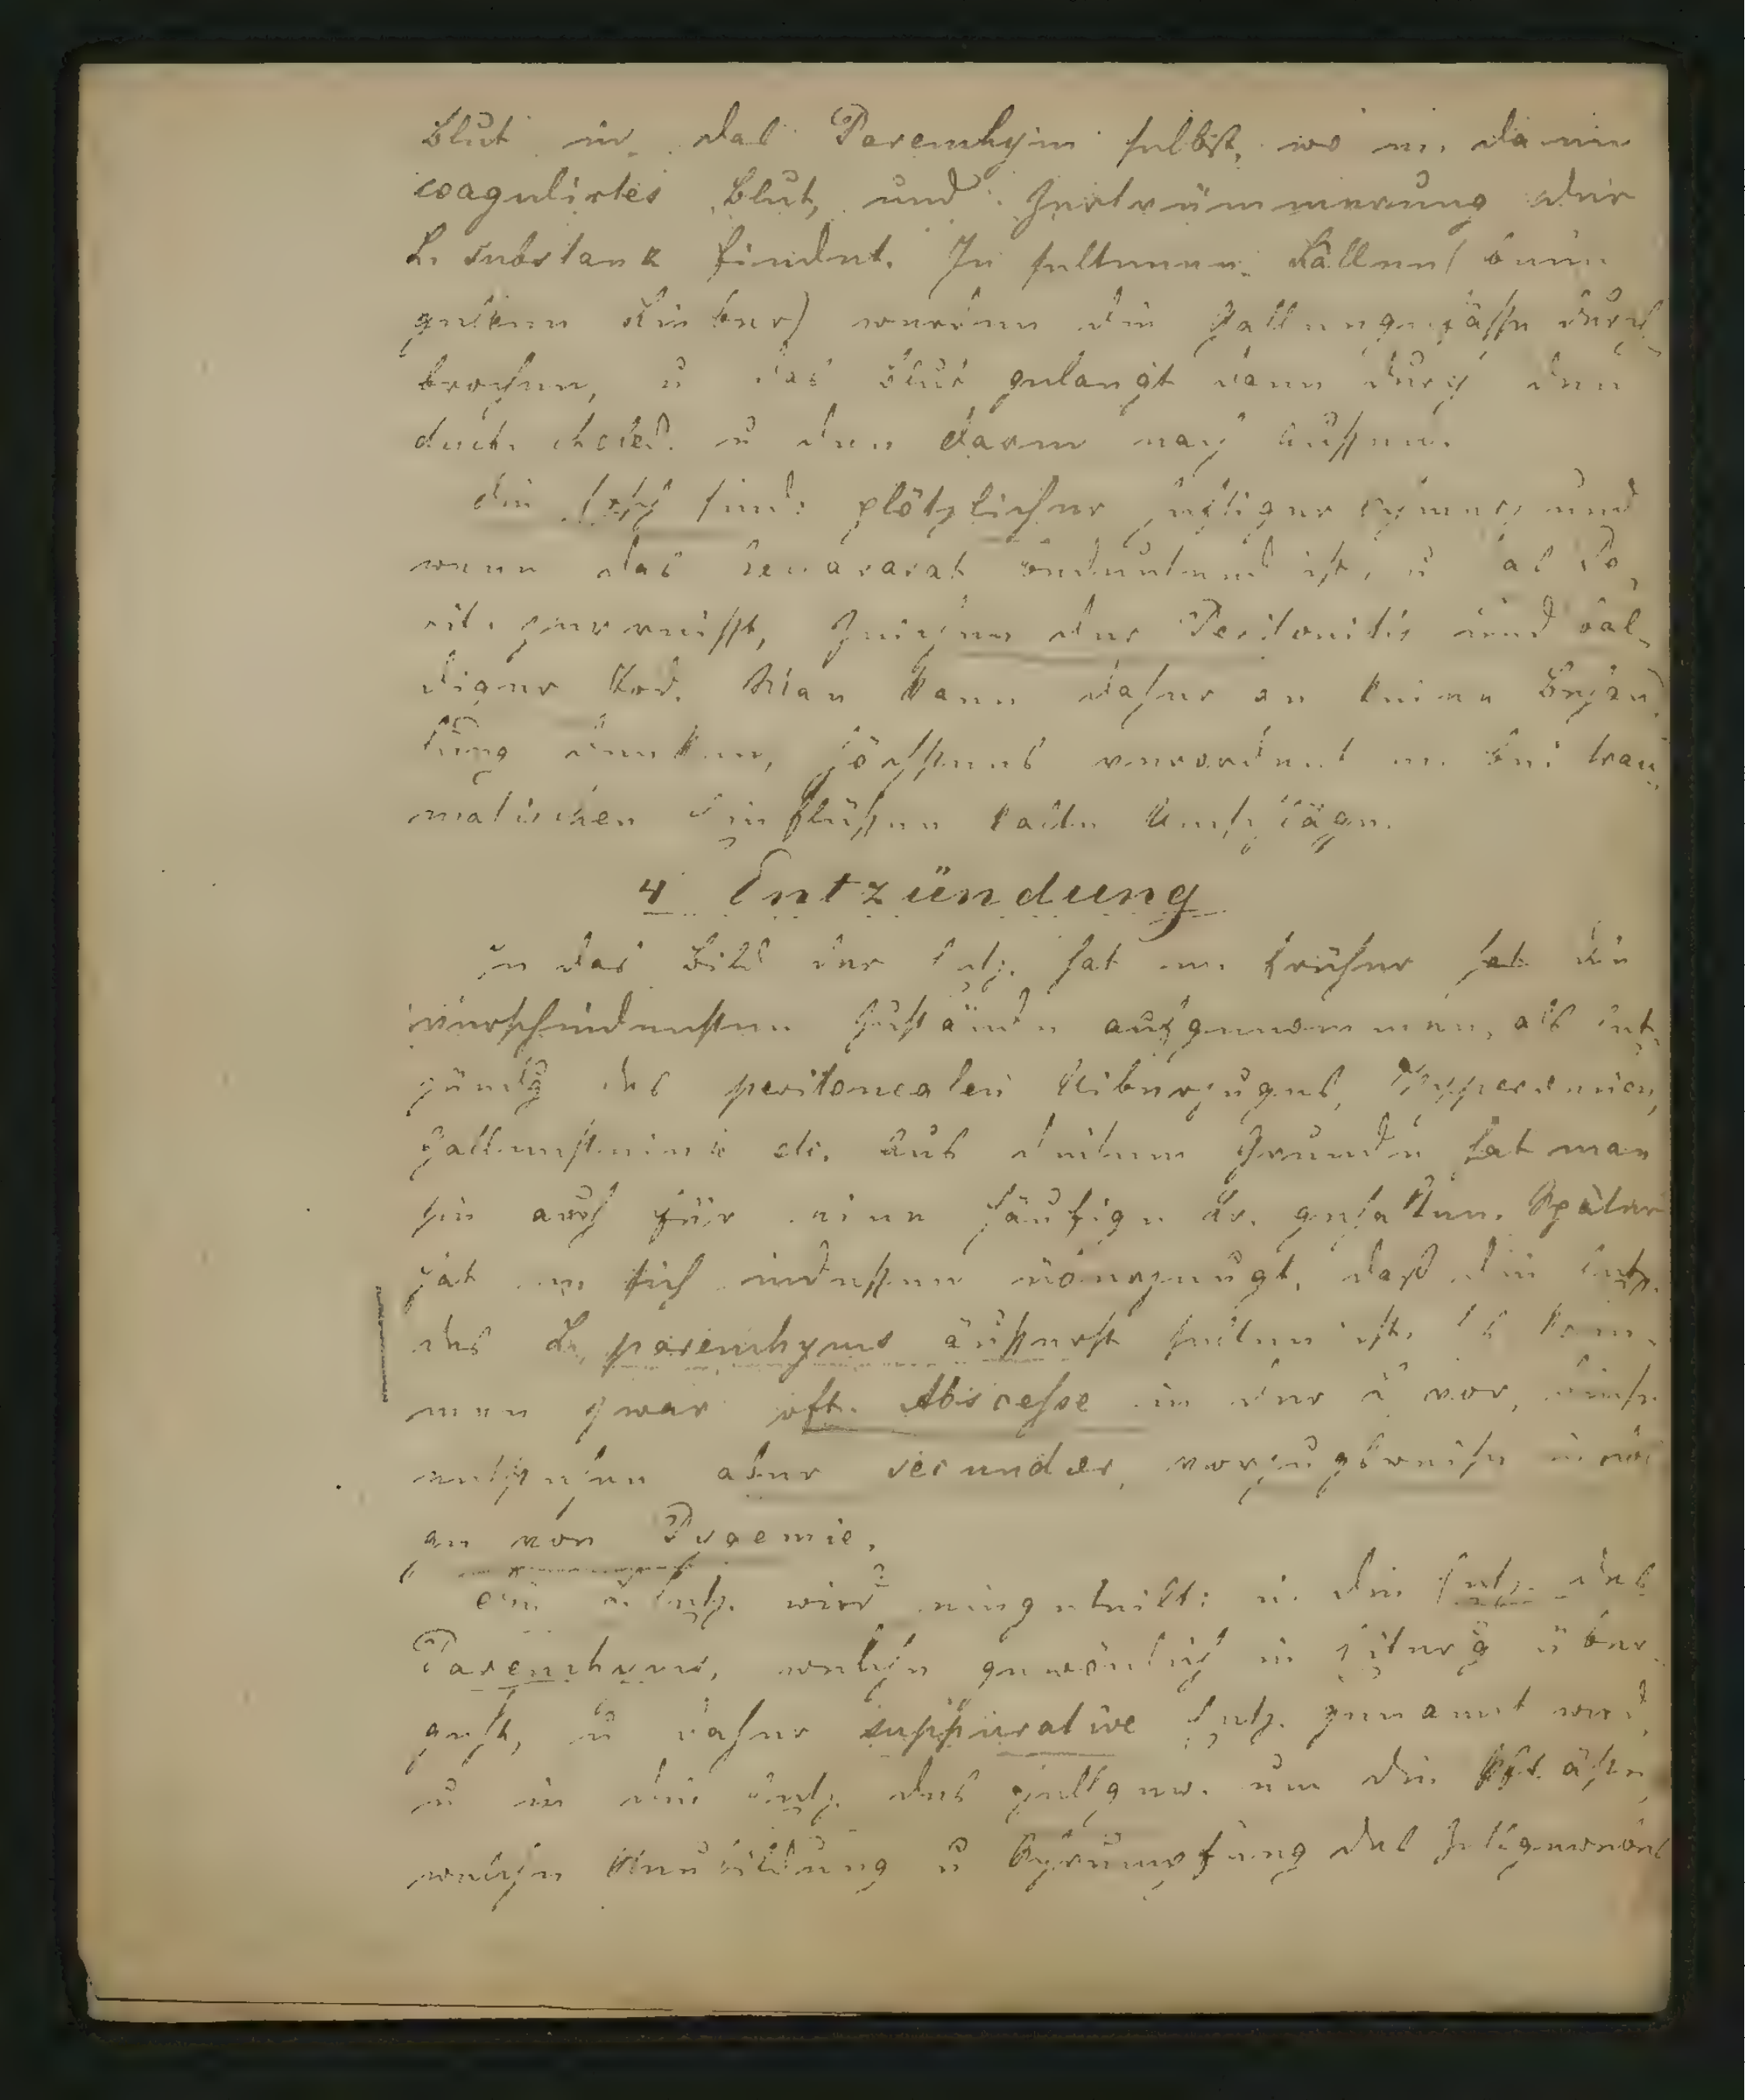 Blut in das Parenchym selbst, wo m. dann
coagulirtes Blut, und Zertrümmerung der
L. substanz findet. In seltenen Fällen (beim
gelben Fieber) werden die Gallengefässe durch
brochen, u das Blut gelangt dann durch den
duct. choled. u den Darm nach aussen.
Die sind: plötzlicher heftiger Schmerz und
wenn das bedeutend ist, u das Pe
rit. zerreisst, Zeichen der Peritonitis und bal
diger Tod. Man kann daher an keine Behand
lung denken, höchstens verordnet m. bei trau
matischen Einflüssen kalte Umschläge.
4 Entzündung
In das Bild der Entz. hat m. früher hat die
verschiedensten Zustände aufgenommen, als Ent
zündg des peritonealen Leberzuges, Hyperaemien,
Gallensteine etc. Aus diesem Grunde hat man
sie auch für eine häufige Kr. gehalten. Später
hat m sich indessen überzeugt, dass die Entz.
des L. parenchyms äusserst selten ist. Es kom
men zwar oft Abscesse in der L vor, diese
entstehen aber secundär, vorzugsweise in
gen von Pyaemie.
Die L. Entz. wird eingetheilt: in die Entz. des
Parenchyms, welche gewönlich in Eiterg über
geht, u daher suppurative Entz. genannt wird,
u in die Entz. des Zellgew. um die
welche Neubildung u Schrumpfung des Zellgewebes